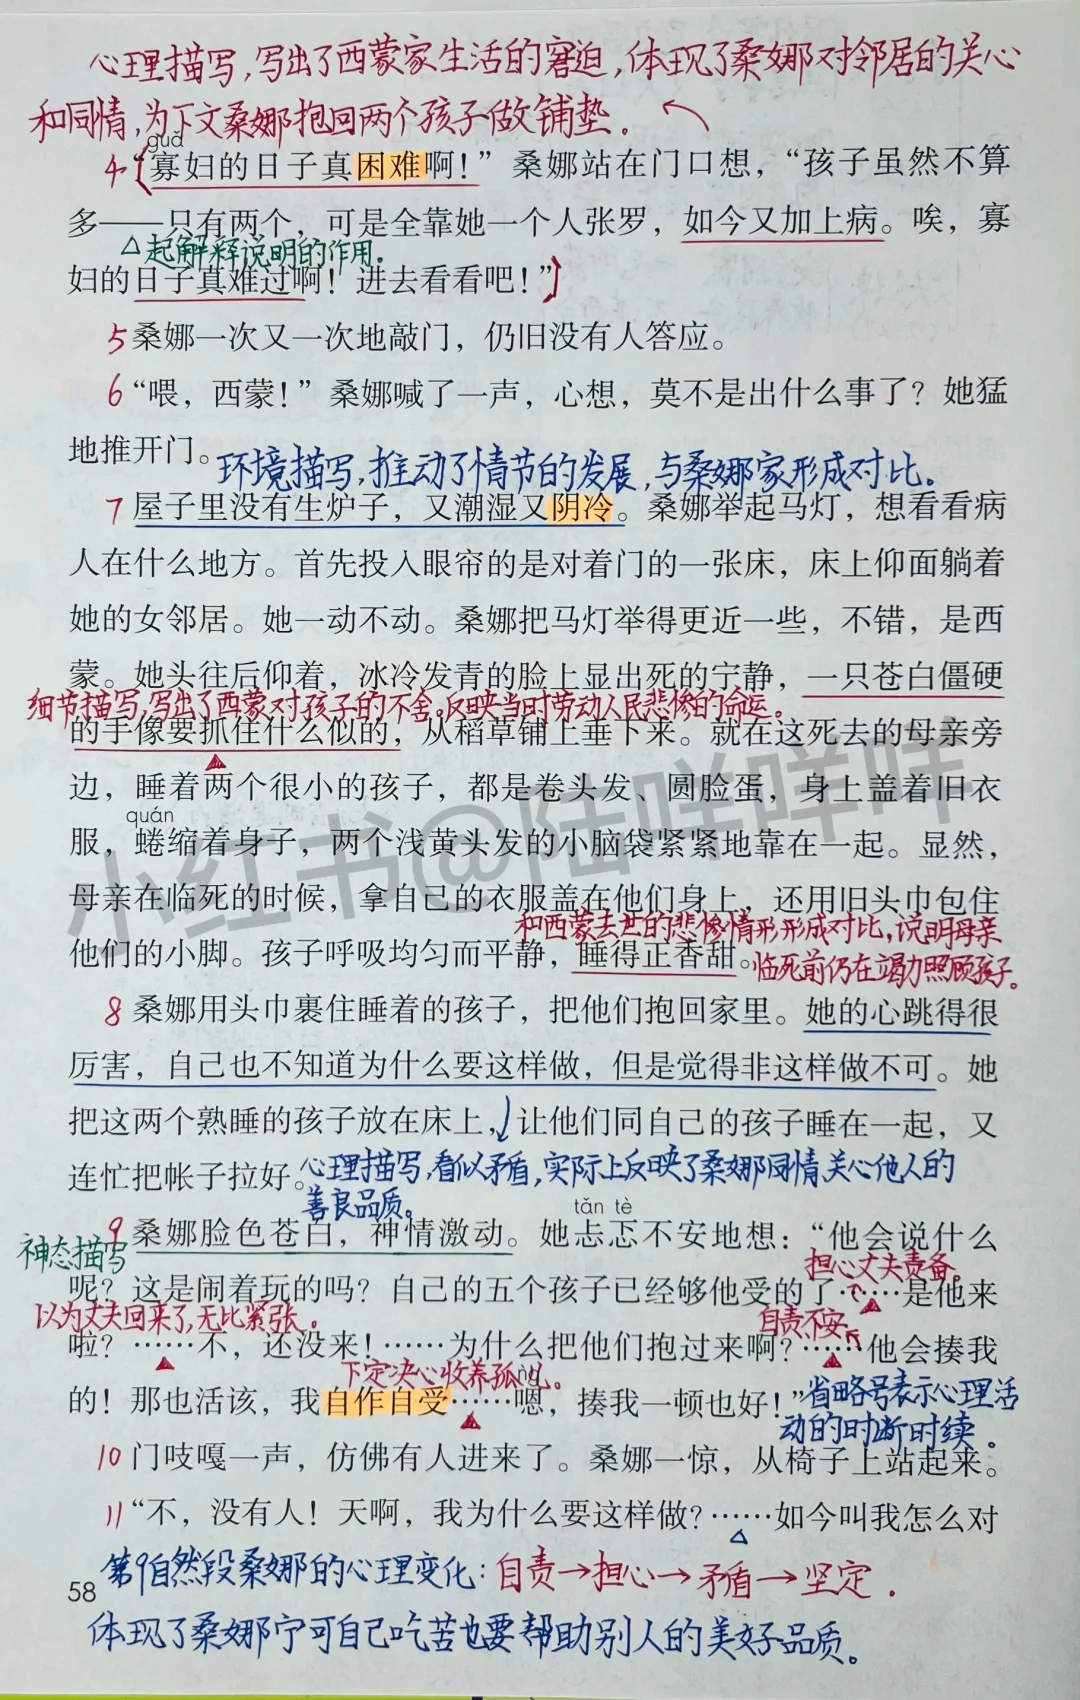 心理描写,写出了西蒙家生活的窘迫,体现了桑娜对邻居的关心
和同情,为下文桑娜抱回两个孩子做铺垫。
guǎ
4 “寡妇的日子真困难啊！”桑娜站在门口想，“孩子虽然不算
多——只有两个，可是全靠她一个人张罗，如今又加上病。唉，寡
△起解释说明的作用。
妇的日子真难过啊！进去看看吧！”
5 桑娜一次又一次地敲门，仍旧没有人答应。
6 “喂，西蒙！”桑娜喊了一声，心想，莫不是出什么事了？她猛
地推开门。
环境描写,推动了情节的发展,与桑娜家形成对比。
7 屋子里没有生炉子，又潮湿又阴冷。桑娜举起马灯，想看看病
人在什么地方。首先投入眼帘的是对着门的一张床，床上仰面躺着
她的女邻居。她一动不动。桑娜把马灯举得更近一些，不错，是西
蒙。她头往后仰着，冰冷发青的脸上显出死的宁静，一只苍白僵硬
细节描写,写出了西蒙对孩子的不舍。反映当时劳动人民悲惨的命运。
的手像要抓住什么似的，从稻草铺上垂下来。就在这死去的母亲旁
边，睡着两个很小的孩子，都是卷头发、圆脸蛋，身上盖着旧衣
quán
服，蜷缩着身子，两个浅黄头发的小脑袋紧紧地靠在一起。显然，
母亲在临死的时候，拿自己的衣服盖在他们身上，还用旧头巾包住
和西蒙去世的悲惨情形形成对比,说明母亲
他们的小脚。孩子呼吸均匀而平静，睡得正香甜。
临死前仍在竭力照顾孩子。
8 桑娜用头巾裹住睡着的孩子，把他们抱回家里。她的心跳得很
厉害，自己也不知道为什么要这样做，但是觉得非这样做不可。她
把这两个熟睡的孩子放在床上，让他们同自己的孩子睡在一起，又
连忙把帐子拉好。
心理描写,看似矛盾,实际上反映了桑娜同情、关心他人的
善良品质。
tǎn tè
9 桑娜脸色苍白，神情激动。她忐忑不安地想：“他会说什么
神态描写
担心丈夫责备。
呢？这是闹着玩的吗？自己的五个孩子已经够他受的了……是他来
以为丈夫回来了,无比紧张。
自责、不安
啦？……不，还没来！……为什么把他们抱过来啊？……他会揍我
下定决心收养孤儿。
ńg
的！那也活该，我自作自受……嗯，揍我一顿也好！”
省略号表示心理活
动的时断时续。
10 门吱嘎一声，仿佛有人进来了。桑娜一惊，从椅子上站起来。
11 “不，没有人！天啊，我为什么要这样做？……如今叫我怎么对
第9自然段桑娜的心理变化:自责→担心→矛盾→坚定.
58
体现了桑娜宁可自己吃苦也要帮助别人的美好品质。
小红书@陆咩咩咩